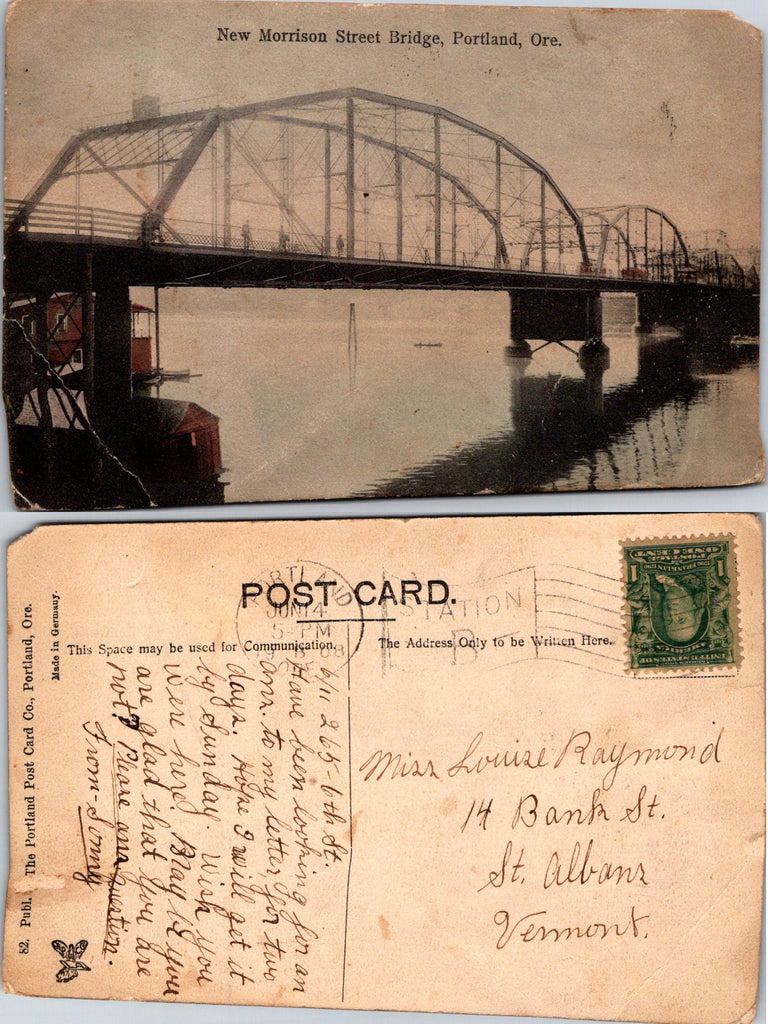 New Morrison Street Bridge, Portland, Ore.
POST CARD.
PORTLAND
JUN 14
5-PM
STATION
B
This Space may be used for Communication.
The Address Only to be Written Here.
82. Publ. The Portland Post Card Co., Portland, Ore.
Made in Germany.
ONE CENT
POSTAGE
1 FRANKLIN 1
UNITED STATES OF
AMERICA
6/11 265-6th St.
Have been looking for an
ans. to my letter, for two
days. Hope I will get it
by Sunday. Wish you
were here
are glad that you are
not? Please ans question.
From-
Miss Louise Raymond
14 Bank St.
St. Albans
Vermont.